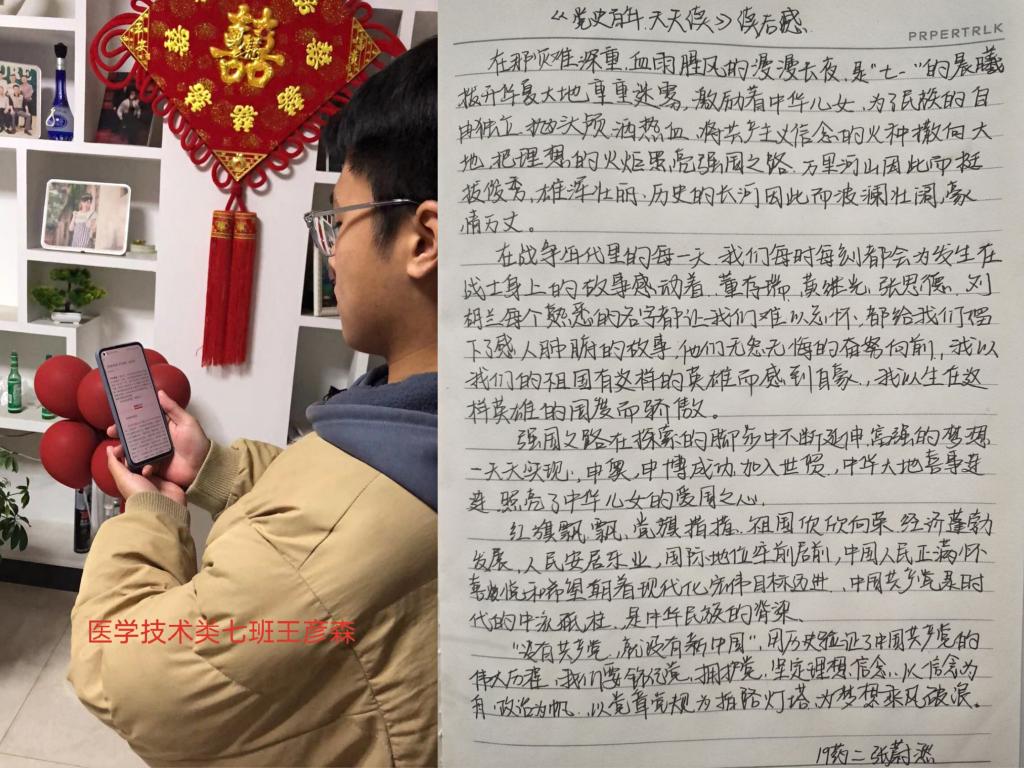 囍
医学技术类七班王彦森
《党史百年天天读》读后感
PAPERTALK
在那灾难深重、血雨腥风的漫漫长夜,是“七一”的晨曦
拨开华夏大地重重迷雾,激励着中华儿女,为了民族的自
由独立,抛头颅,洒热血,将共产主义信念的火种撒向大
地,把理想的火炬照亮强国之路,万里河山因此而挺
拔俊秀,雄浑壮丽,历史的长河因此而波澜壮阔,豪
情万丈。
在战争年代里的每一天,我们每时每刻都会为发生在
战士身上的故事感动着,董存瑞,黄继光,张思德,刘
胡兰每个熟悉的名字都让我们难以忘怀,都给我们留
下了感人肺腑的故事,他们无怨无悔的奋勇向前,我以
我们的祖国有这样的英雄而感到自豪,我以生在这
样英雄的国度而骄傲。
强国之路在探索的脚步中不断延伸,富强的梦想
一天天实现,申奥,申博成功,加入世贸,中华大地喜事连
连,照亮了中华儿女的爱国之心,
红旗飘飘,党旗指挥,祖国欣欣向荣,经济蓬勃
发展,人民安居乐业,国际地位空前启前,中国人民正满怀
喜悦和希望朝着现代化宏伟目标迈进,中国共产党是时
代的中流砥柱,是中华民族的脊梁。
“没有共产党,就没有新中国”,用历史验证了中国共产党的
伟大历程,我们要铭记党,拥护党,坚定理想信念,以信念为
舟,政治为帆,以党章党规为指路灯塔,为梦想乘风破浪。
19药二 张蔚